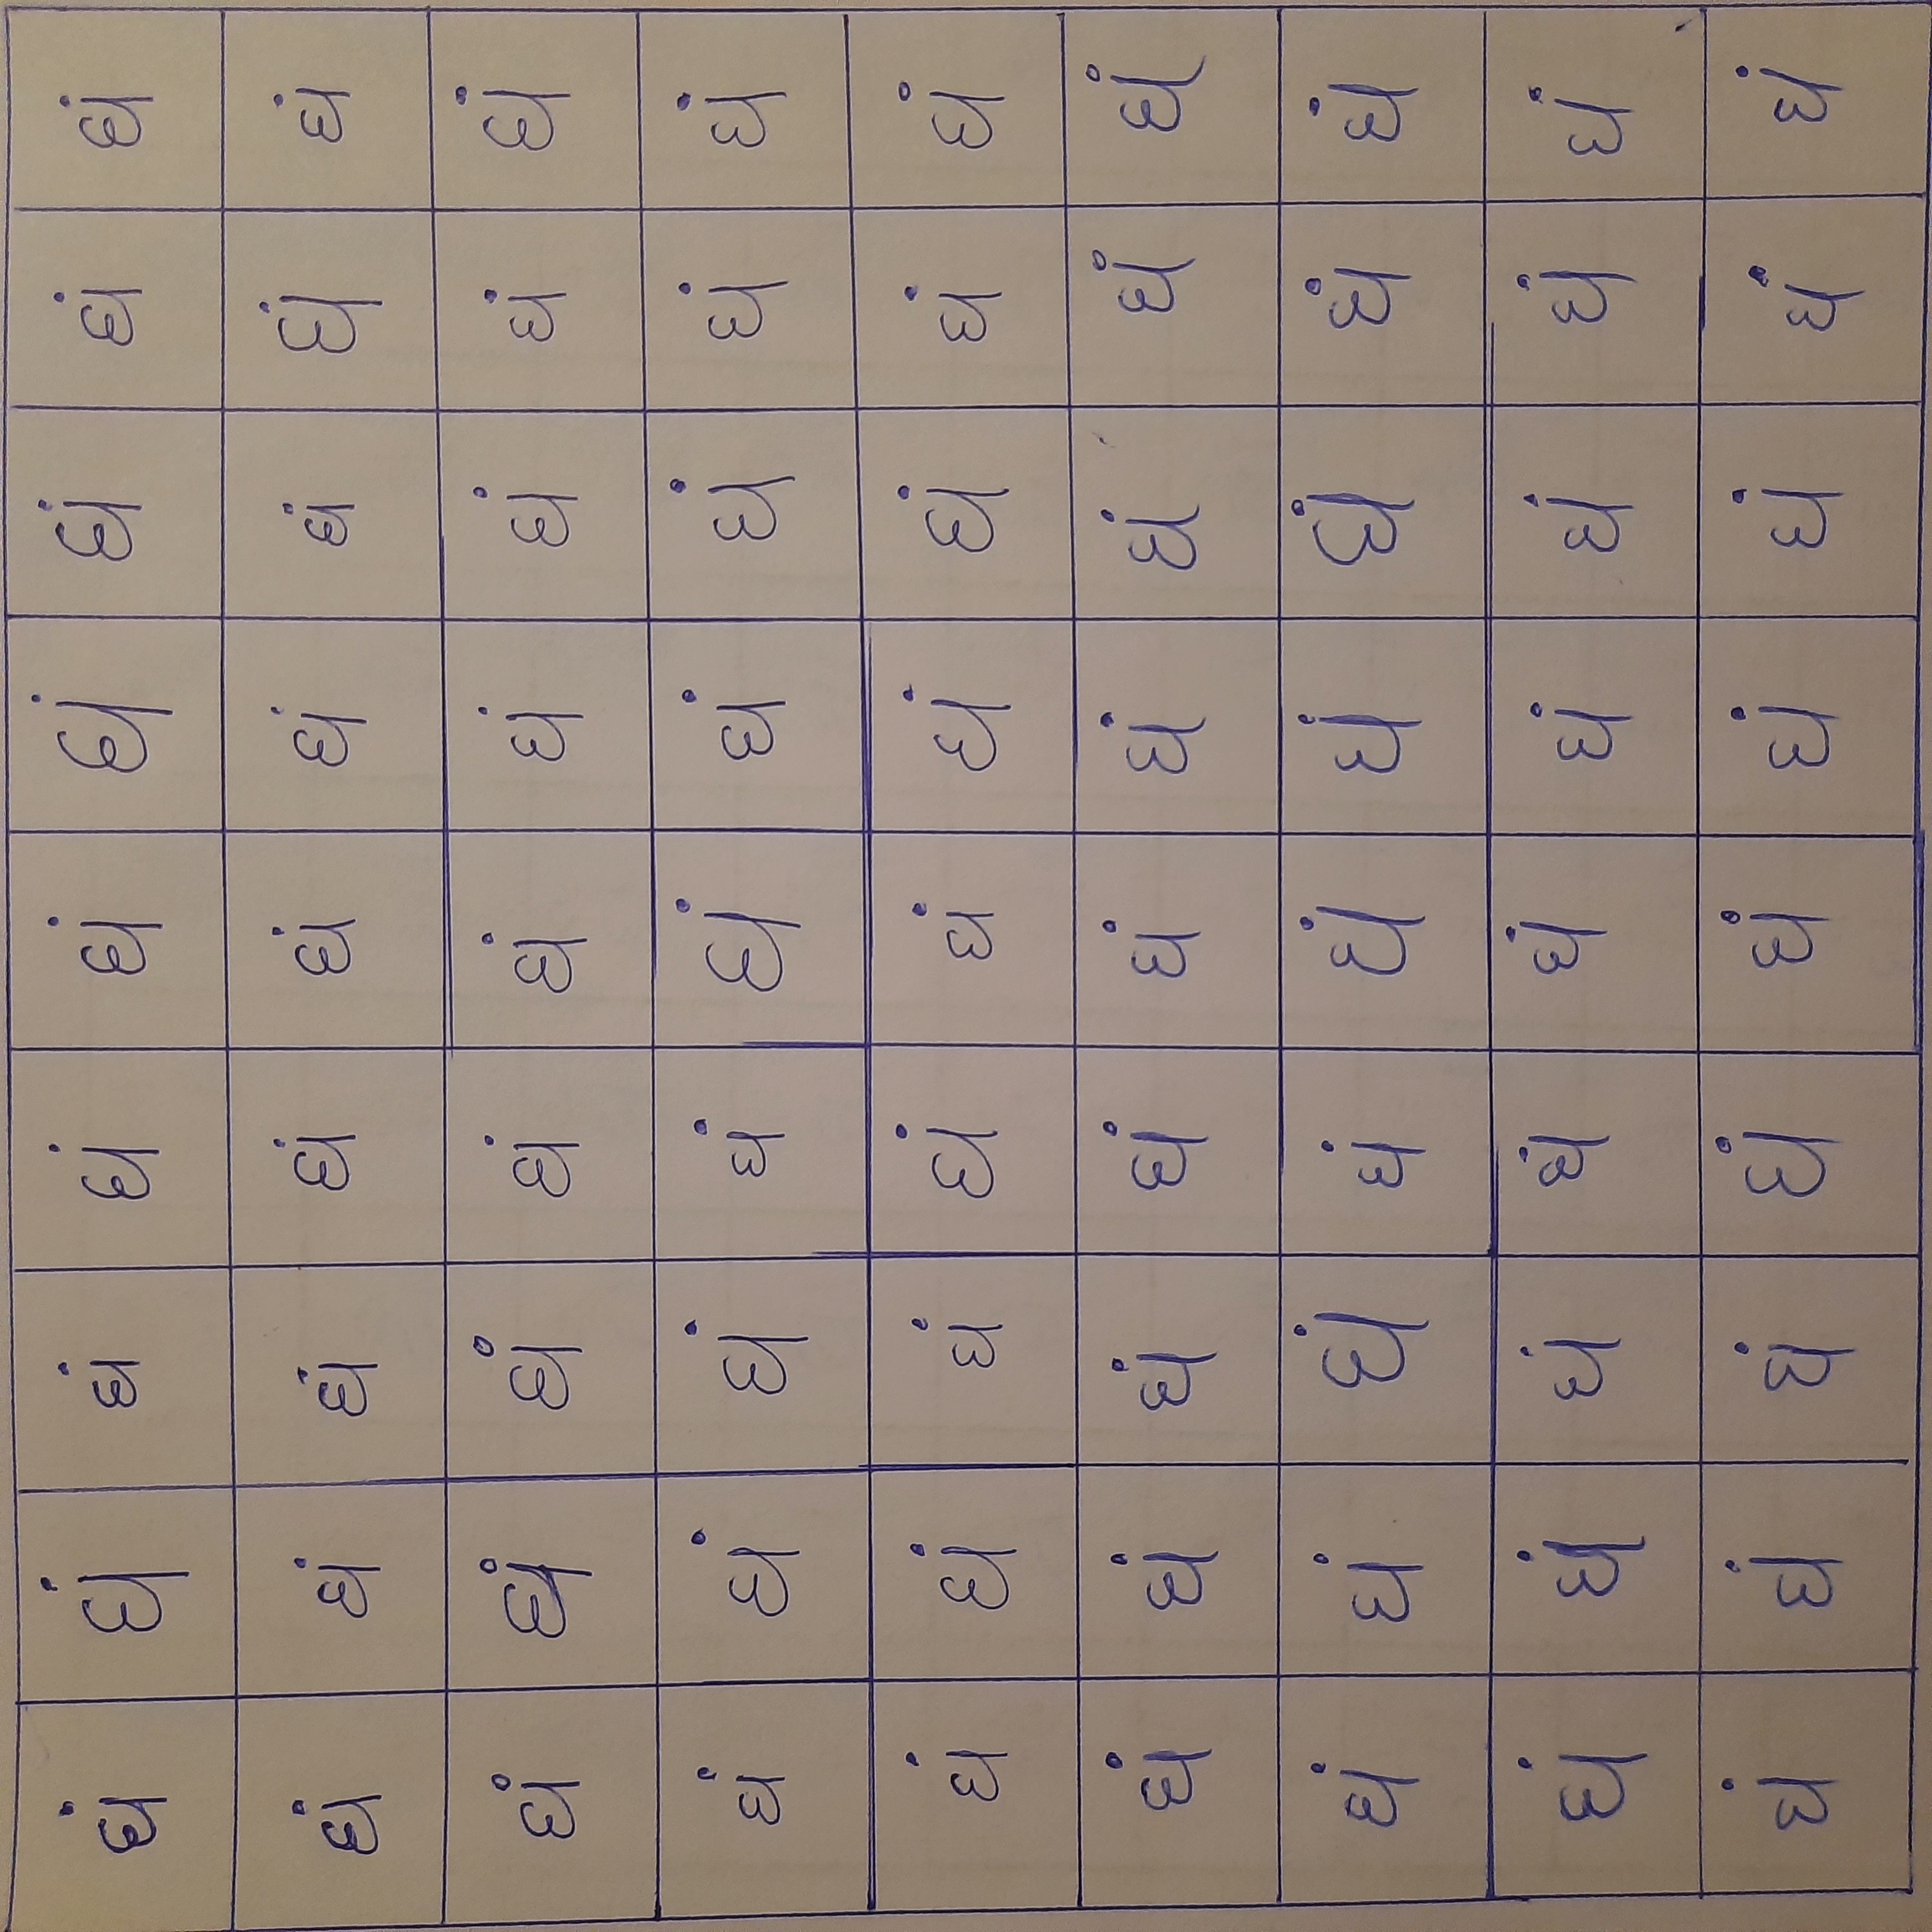 ઘં ઘં ઘં ઘં ઘં ઘં ઘં ઘં ઘં
ઘં ઘં ઘં ઘં ઘં ઘં ઘં ઘં ઘં
ઘં ઘં ઘં ઘં ઘં ઘં ઘં ઘં ઘં
ઘં ઘં ઘં ઘં ઘં ઘં ઘં ઘં ઘં
ઘં ઘં ઘં ઘં ઘં ઘં ઘં ઘં ઘં
ઘં ઘં ઘં ઘં ઘં ઘં ઘં ઘં ઘં
ઘં ઘં ઘં ઘં ઘં ઘં ઘં ઘં ઘં
ઘં ઘં ઘં ઘં ઘં ઘં ઘં ઘં ઘં
ઘં ઘં ઘં ઘં ઘં ઘં ઘં ઘં ઘં